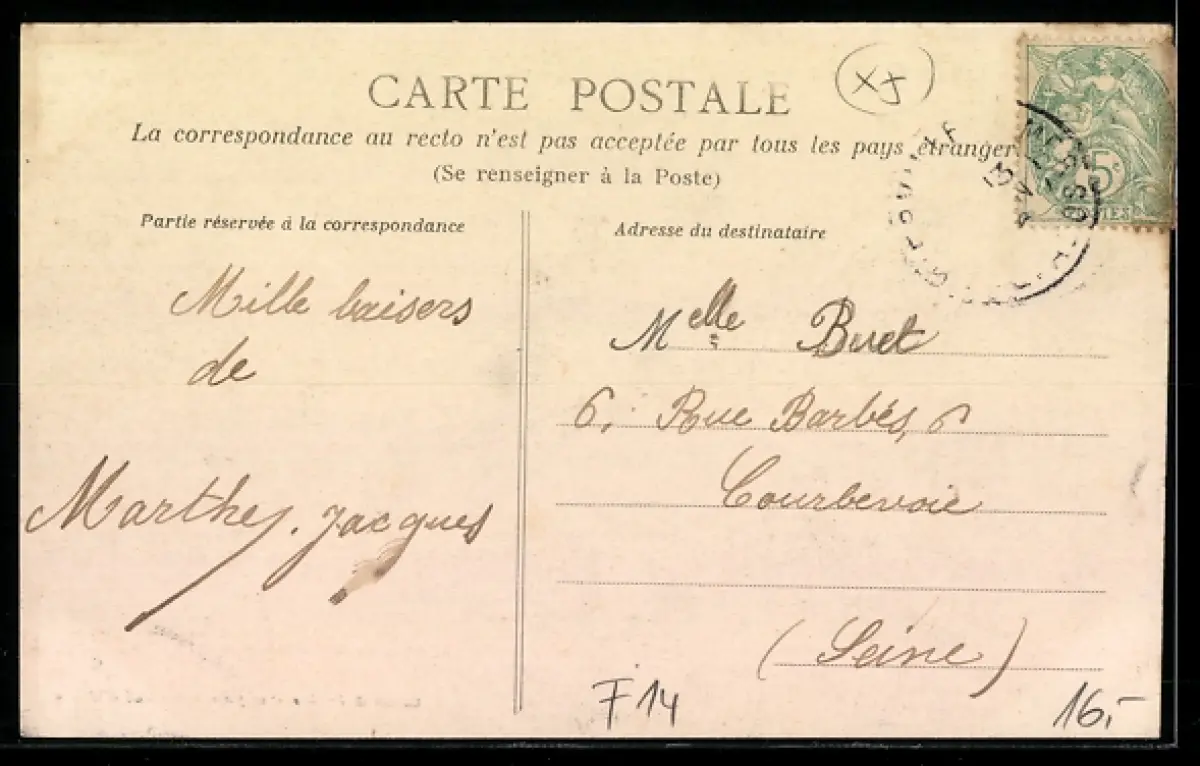 CARTE POSTALE
XJ
La correspondance au recto n'est pas acceptée par tous les pays étranger
(Se renseigner à la Poste)
Partie réservée à la correspondance
Mille baisers
de
Marthe. Jacques
Adresse du destinataire
Melle Buet
6, Rue Barbès, 6
Courbevoie
(Seine)
5c
F14
16,-